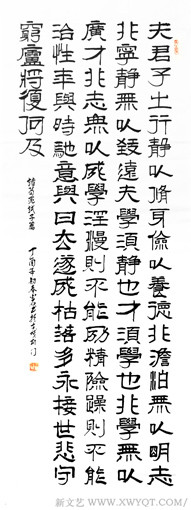 夫君子之行靜以脩身儉以養德非澹泊無以明志
非寧靜無以致遠夫學須靜也才須學也非學無以
廣才非志無以成學淫慢則不能励精險躁則不能
治性年與時馳意與日去遂成枯落多不接世悲守
窮廬將復何及
諸葛亮誡子書
丁酉年初春書
新文艺/ WWW.XWYQT.COM/